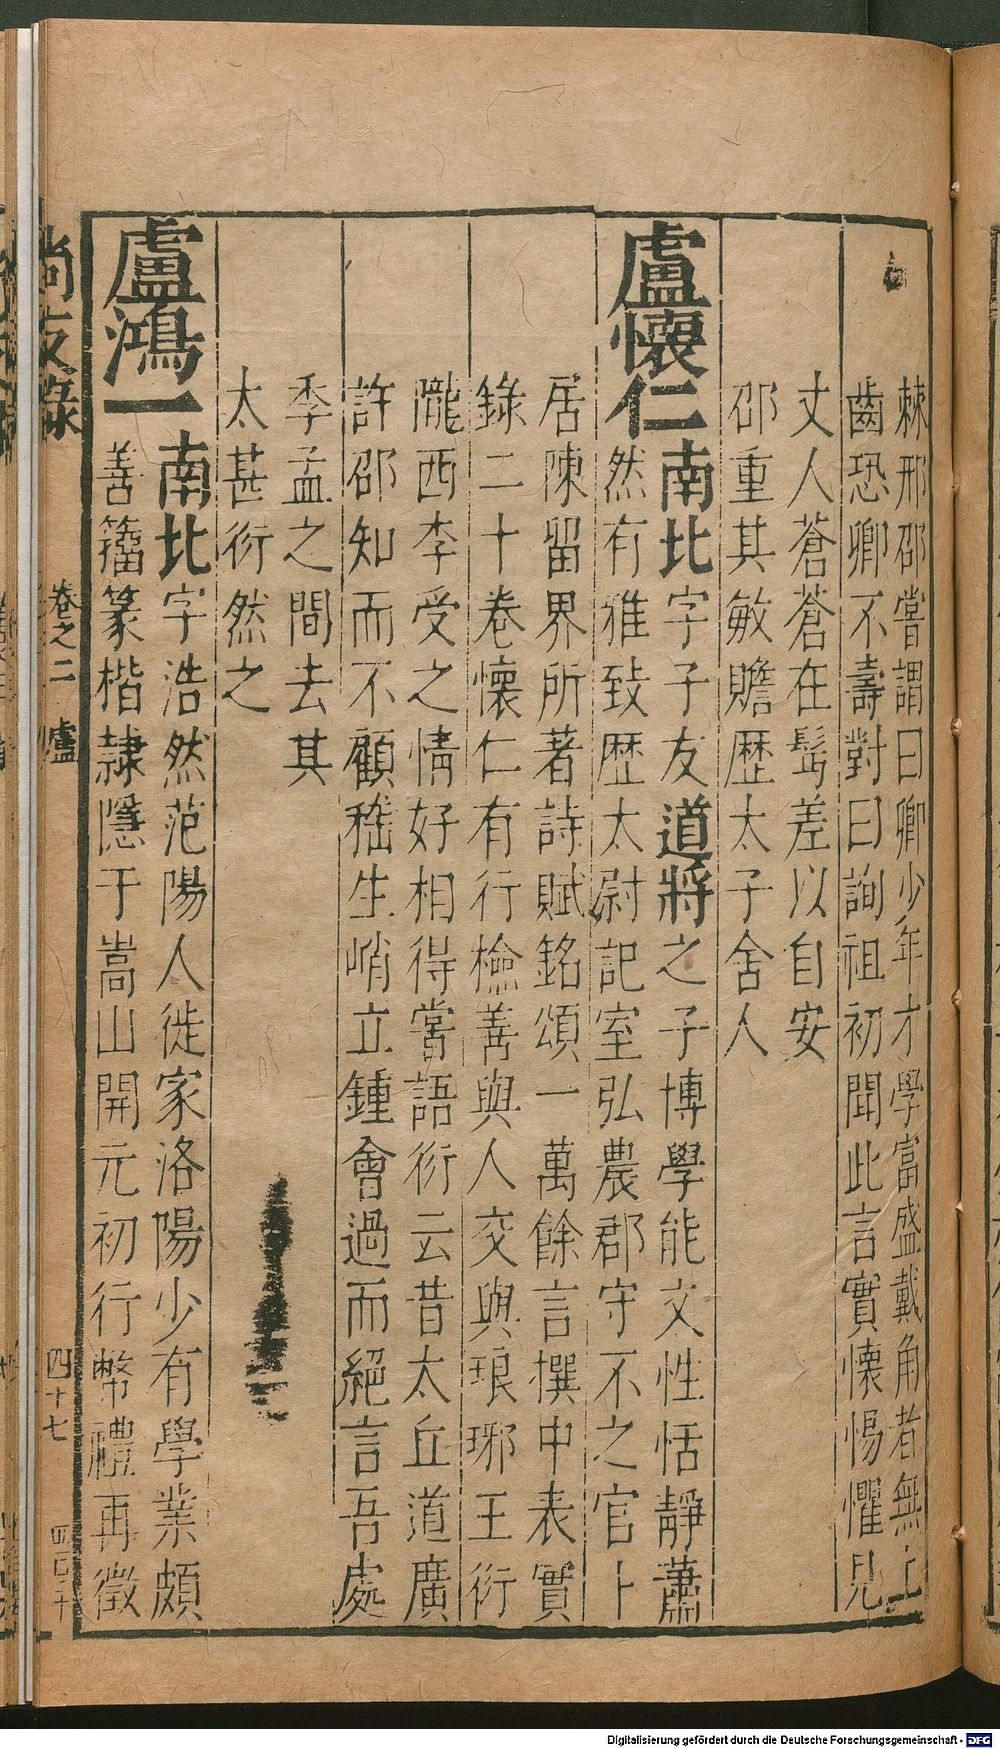 棘邢邵嘗謂曰卿少年才學富盛戴角者無上
齒恐卿不壽對曰詢祖初聞此言實懷惕懼見
丈人蒼蒼在髩差以自安
邵重其敏贍歷太子舍人
盧懷仁南北字子友道將之子博學能文性恬靜蕭
然有雅致歷太尉記室弘農郡守不之官卜
居陳留界所著詩賦銘頌一萬餘言撰中表實
錄二十卷懷仁有行檢善與人交與琅琊王衍
隴西李受之情好相得嘗語衍云昔太丘道廣
許邵知而不顧嵇生峭立鍾會過而絕言吾處
季孟之間去其
太甚衍然之
盧鴻一南北字浩然范陽人徙家洛陽少有學業頗
善籕篆楷隷隱于嵩山開元初行幣禮再徵
尚友錄
卷之二
盧
四十七
Digitalisierung gefördert durch die Deutsche Forschungsgemeinschaft - DFG